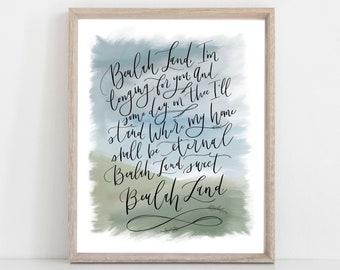 Beulah Land, I'm
longing for you and
some day, on thee I'll
stand Where my home
shall be eternal
Beulah Land, sweet
Beulah Land